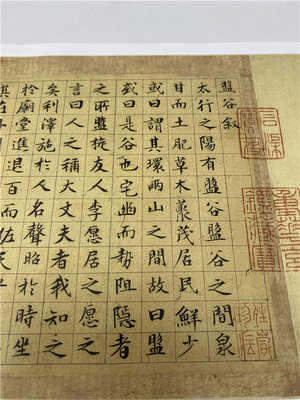 盤谷叙
太行之陽有盤谷盤谷之間泉
甘而土肥草木藂茂居民鮮少
或曰謂其環兩山之間故曰盤
或曰是谷也宅幽而勢阻隱者
之所盤旋友人李愿居之愿之
言曰人之稱大丈夫者我知之
矣利澤施於人名聲昭於時坐
於廟堂進退百而佐天
其在外